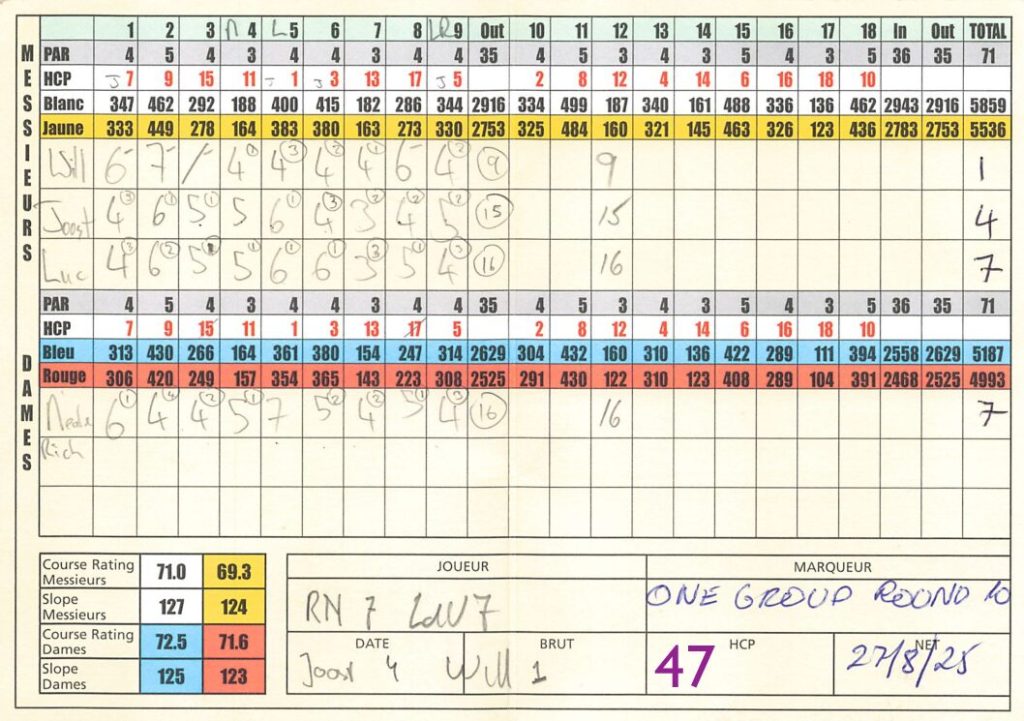 1 2 3 4 L 5 6 7 8 LR 9 Out 10 11 12 13 14 15 16 17 18 In Out TOTAL
MESSIEURS
PAR 4 5 4 3 4 4 3 4 4 35 4 5 3 4 3 5 4 3 5 36 35 71
HCP J 7 9 15 11 J 1 J 3 13 17 J 5 2 8 12 4 14 6 16 18 10
Blanc 347 462 292 188 400 415 182 286 344 2916 334 499 187 340 161 488 336 136 462 2943 2916 5859
Jaune 333 449 278 164 383 380 163 273 330 2753 325 484 160 321 145 463 326 123 436 2783 2753 5536
Will 6- 7- / 4 4 3 4 2 4 1 6- 4 9 9 1
Joost 4 3 6 1 5 1 5 6 1 4 3 3 2 4 2 5 2 15 15 4
Luc 4 3 6 2 5 1 5 1 6 1 6 1 3 3 5 1 4 3 16 16 7
PAR 4 5 4 3 4 4 3 4 4 35 4 5 3 4 3 5 4 3 5 36 35 71
HCP 7 9 15 11 1 3 13 17 5 2 8 12 4 14 6 16 18 10
DAMES
Bleu 313 430 266 164 361 380 154 247 314 2629 304 432 160 310 136 422 289 111 394 2558 2629 5187
Rouge 306 420 249 157 354 365 143 223 308 2525 291 430 122 310 123 408 289 104 391 2468 2525 4993
6 1 4 4 4 2 5 1 7 5 2 4 2 5 1 4 3 16 16 7
Rich
Course Rating Messieurs 71.0 69.3
Slope Messieurs 127 124
Course Rating Dames 72.5 71.6
Slope Dames 125 123
JOUEUR
RN 7 LdV 7
MARQUEUR
ONE GROUP ROUND 10
DATE
Joost 4
BRUT
Will 1
HCP
47
NET
27/8/25